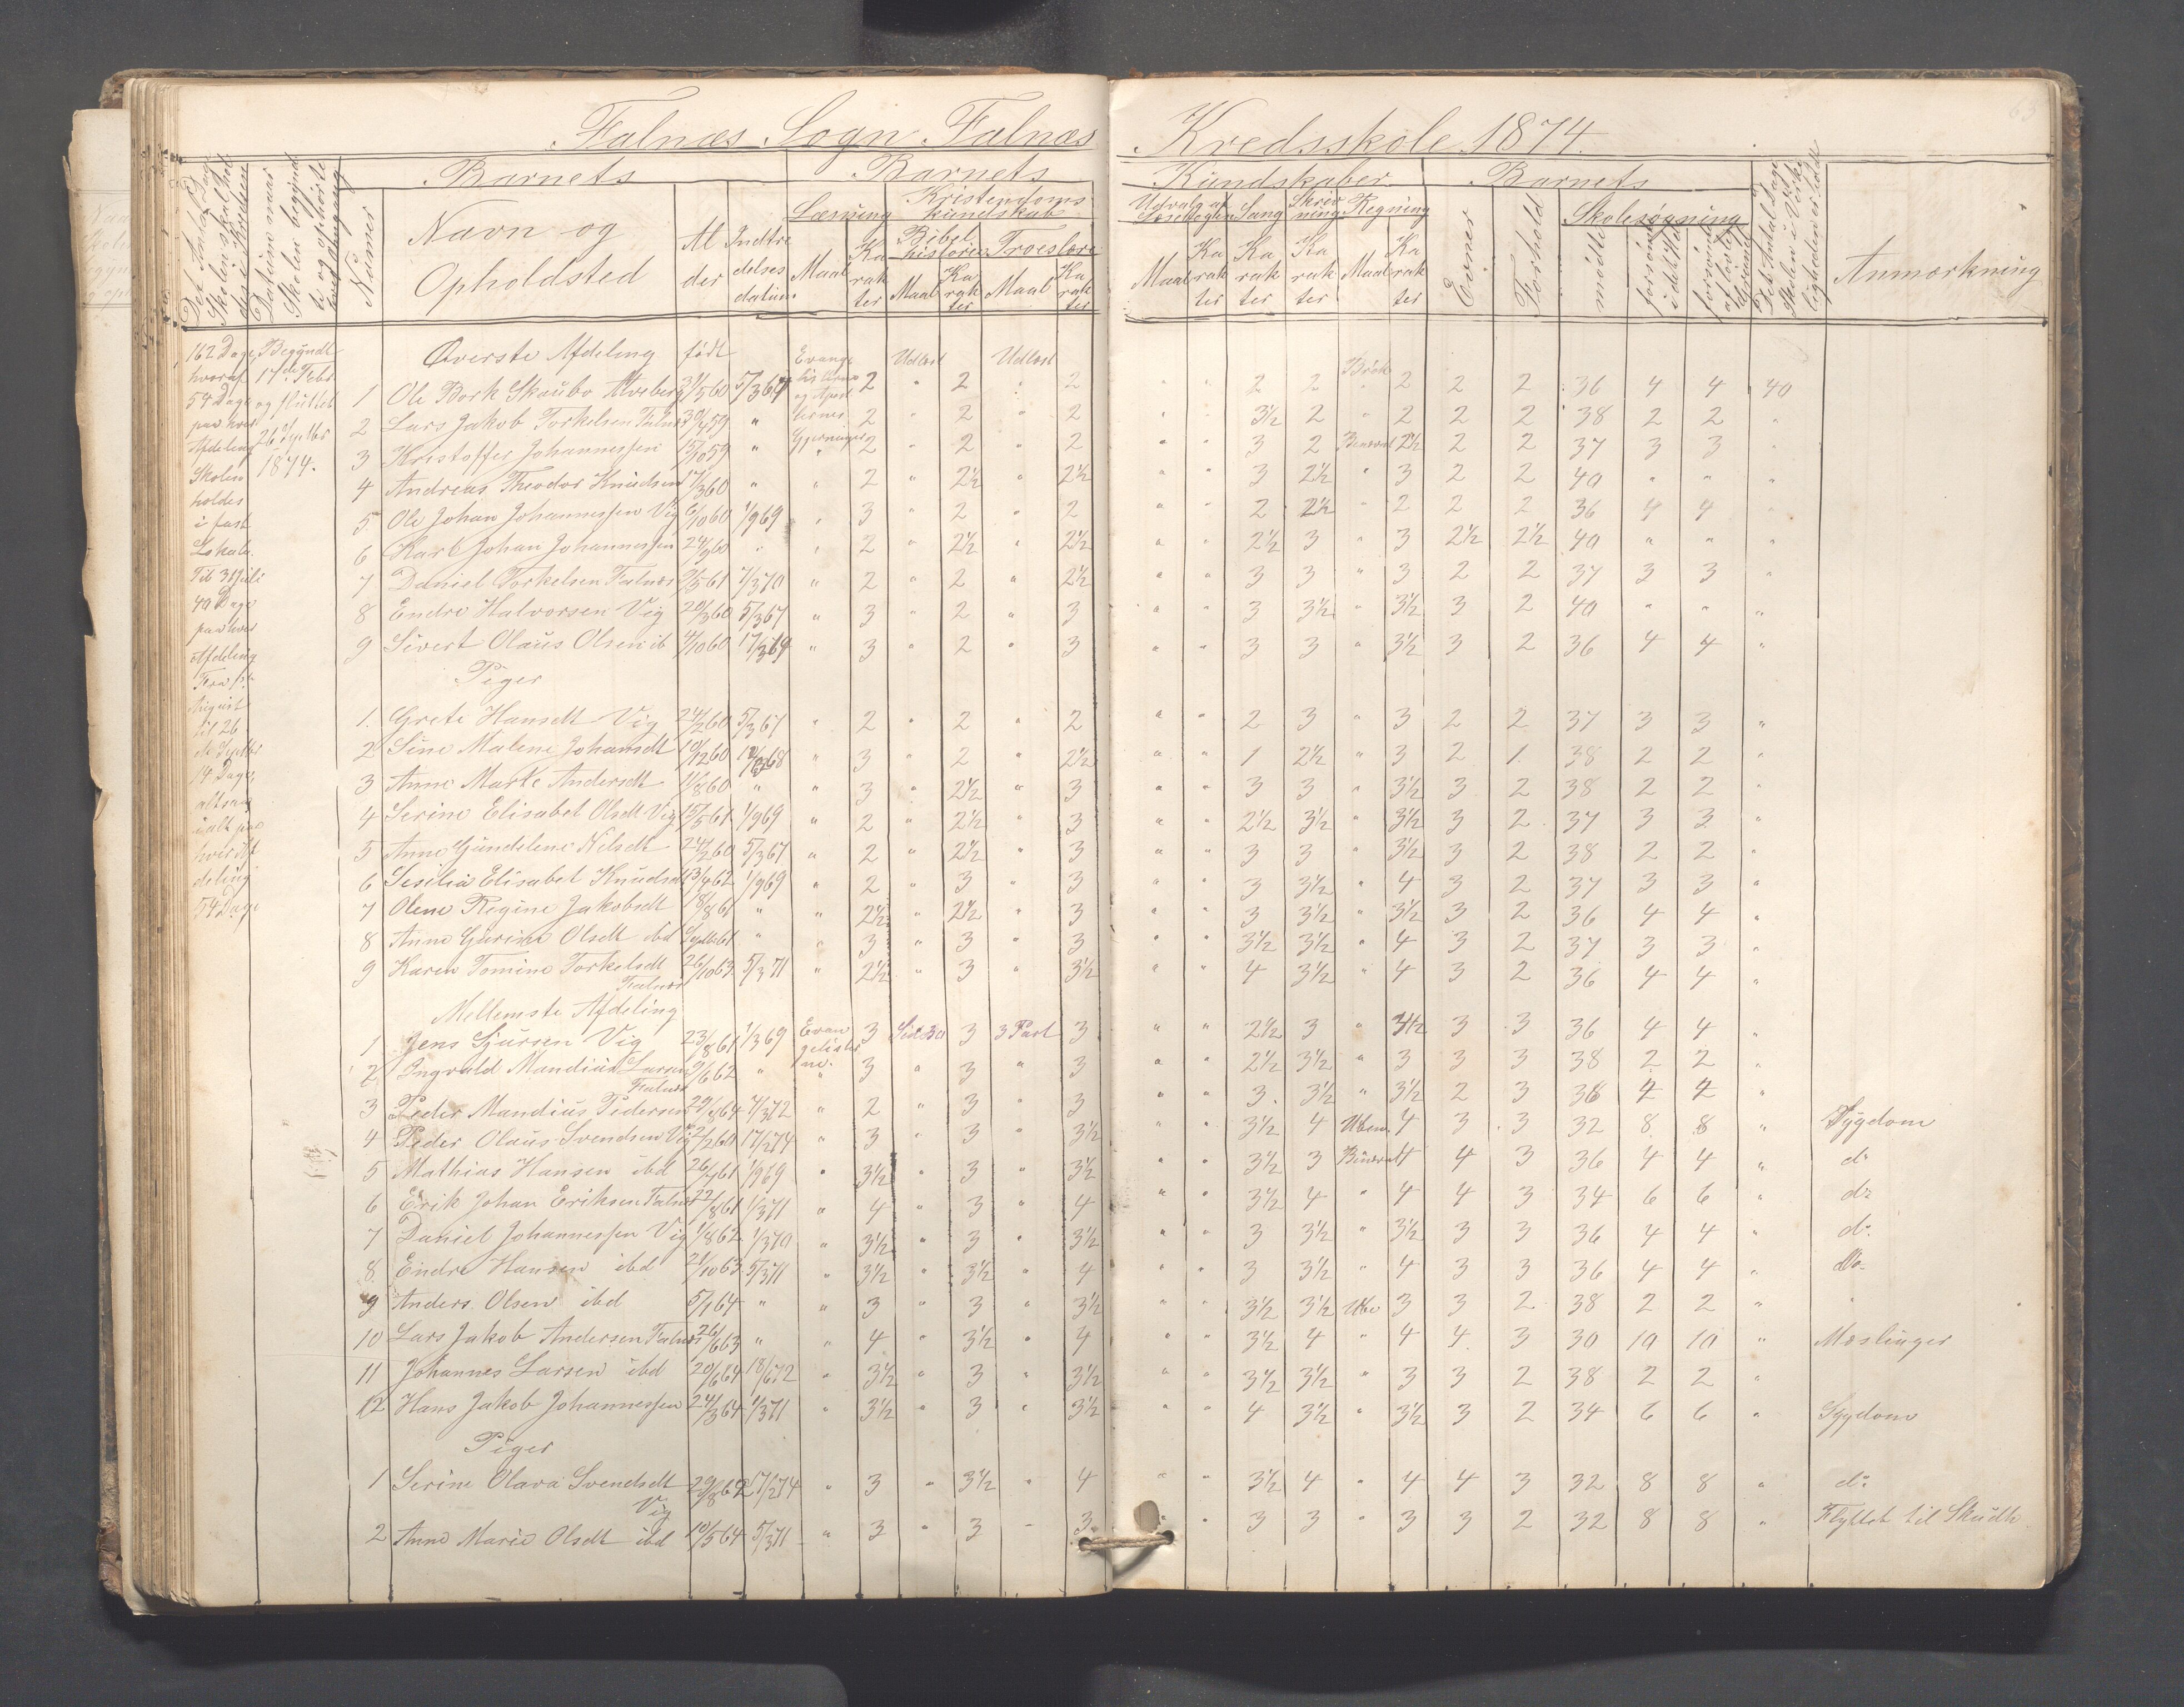 Falnæs Sogn Falnæs Kredsskole 1874.
63
Barnets Barnets Kundskaber Barnets
Det Antal Dage Skolen skal holdes i Kredsen
Datum naar Skolen begyndte og ophørte hver Omgang
Numer
Navn og Opholdsted
Alder
Indtrædelses datum
Læsning Maal Karakter
Kristendomskundskab
Bibelhistorie Maal Karakter
Troeslære Maal Karakter
Udvalg af Læsebogen Maal Karakter
Sang Karakter
Skrivning Karakter
Regning Maal Karakter
Evner
Forhold
Skolesøgning
mødte
forsømte i det Hele
forsømte af lovlig Grund
Det Antal Dage Skolen i Virkeligheden er holdt
Anmærkning
162 Dage hvoraf 54 Dage paa hver Afdeling Skolen holdes i fast Lokale.
Til 31 Juli 40 Dage paa hver Afdeling
Fra 1st August til 26 de Septbr 14 Dage, altsaa ialt paa hver Afdeling 54 Dage
Begyndt 17de Febr og sluttet 26 Septbr 1874.
Øverste Afdeling født Evangelisterne og Apostlernes Gjerninger Udlæst Udlæst Brøk
1 Ole Bork Skaubo Alveberg 31/5 60 5/3 67 2 " 2 " 2 " " 2 2 " 2 2 2 36 4 4 40
2 Lars Jakob Torkelsen Falnæs 30/4 59 " 2 " 2 " 2 " " 3½ 2 " 2 2 2 38 2 2 "
3 Kristoffer Johannessen 15/10 59 " " 2 " 2 " 2 " " 3 2 Benævnt 2½ 2 2 37 3 3 "
4 Andreas Theodor Knudsen 17/3 60 " " 2 " 2½ " 2½ " " 3 2½ " 3 2 2 40 " " "
5 Ole Johan Johannessen Vig 6/10 60 1/9 69 " 3 " 2 " 2 " " 2 2½ " 2 2 2 36 4 4 "
6 Karl Johan Johannessen 24/9 60 " " 2 " 2½ " 2½ " " 2½ 3 " 3 2½ 2½ 40 " " "
7 Daniel Torkelsen Falnæs 9/5 61 7/3 70 " 2 " 2 " 2½ " " 3 3 " 3 2 2 37 3 3 "
8 Endre Halvorsen Vig 20/3 60 5/3 67 " 3 " 2 " 3 " " 3 3½ " 3½ 3 2 40 " " "
9 Sivert Olaus Olsen ib 4/10 60 17/3 69 " 3 " 2 " 3 " " 3 3 " 3½ 3 2 36 4 4 "
Piger
1. Grete Hansdt Vig 24/2 60 5/3 67 " 2 " 2 " 2 " " 2 3 " 3 2 2 37 3 3 "
2 Sine Malene Johansdt 10/12 60 68 " 3 " 2 " 2½ " " 1 2½ " 3 2 1. 38 2 2 "
3 Anne Marte Andersdt 11/8 60 " " 3 " 2½ " 3 " " 3 3 " 3½ 3 2 38 2 2 "
4 Serine Elisabet Olsdt Vig 15/5 61 1/9 69 " 2 " 2½ " 3 " " 2½ 3½ " 3½ 3 2 37 3 3 "
5 Anne Gundelene Nilsdt 24/2 60 5/3 67 " 2 " 2½ " 3 " " 3 3 " 3½ 3 2 38 2 2 "
6 Sesilia Elisabet Knudsdt 13/4 62 1/9 69 " 2 " 3 " 3 " " 3 3½ " 4 3 2 37 3 3 "
7 Olene Regine Jakobsdt 18/8 61 " " 2½ " 2½ " 3 " " 3 3½ " 3½ 3 2 36 4 4 "
8 Anne Gurine Olsdt ibd Septbr 61 " " 3 " 3 " 3 " " 3½ 3½ " 4 3 2 37 3 3 "
9 Karen Tomine Torkelsdt Falnæs 26/10 63 5/3 71 " 2½ " 3 " 3½ " " 4 3½ " 4 3 2 36 4 4 "
Mellemste Afdeling
1 Jens Sjursen Vig 23/8 61 1/3 69 Evangelisterne. 3 Side 30 3 3 Part 3 " " 2½ 3 " 3½ 3 3 36 4 4 "
2 Ingvald Mandius Larsen Falnæs 9/6 62 " " 3 " 3 " 3 " " 2½ 3½ " 3 3 3 38 2 2 "
3 Peder Mandius Pedersen 29/8 64 7/3 72 " 2 " 3 " 3 " " 3. 3½ " 3½ 2 3 36 4 4 "
4 Peder Olaus Svendsen Vig 2/2 60 17/2 74 " 3 " 3 " 3½ " " 3½ 4 Uben. 4 3 3 32 8 8 " Sygdom
5 Mathias Hansen ibd 26/4 61 1/9 69 " 3½ " 3 " 3½ " " 3½ 3 Benævnt 4 4 3 36 4 4 " do
6 Erik Johan Eriksen Falnæs 22/8 61 1/3 71 " 4 " 3 " 4 " " 3½ 4 " 4 4 3 34 6 6 " do
7 Daniel Johannessen Vig 1/8 62 1/3 70 " 3½ " 3 " 3½ " " 3 3½ " 3½ 3 3 36 4 4 " do
8. Endre Hansen ibd 21/10 63 5/3 71 " 3½ " 3½ " 4 " " 3 3½ " 4 3 3 36 4 4 " do
9 Anders Olsen ibd 5/1 64 " " 3 " 3 " 3½ " " 3½ 3½ Ube 3 3 2 38 2 2 " "
10 Lars Jakob Andersen Falnæs 26/6 63 " " 4 " 3½ " 4 " " 3½ 4 " 4 4 3 30 10 10 " Mæslinger
11 Johannes Larsen ibd 20/6 64 18/6 72 " 3½ " 3 " 3½ " " 3½ 3½ " 3 3 2 38 2 2 "
12 Hans Jakob Johannessen 24/3 64 1/3 71 " 3½ " 3 " 3½ " " 4 3½ " 3½ 3 2 34 6 6 " Sygdom
Piger
1 Serine Olava Svendsdt Vig 29/8 62 17/2 74 " 3 " 3½ " 4 " " 3½ 4 " 4 4 3 32 8 8 " do
2 Anne Marie Olsdt ibd 10/5 64 5/3 71 " 3 " 3 " 3. " " 3 3 " 3 3 2 32 8 8 " Flyttet til Skudh